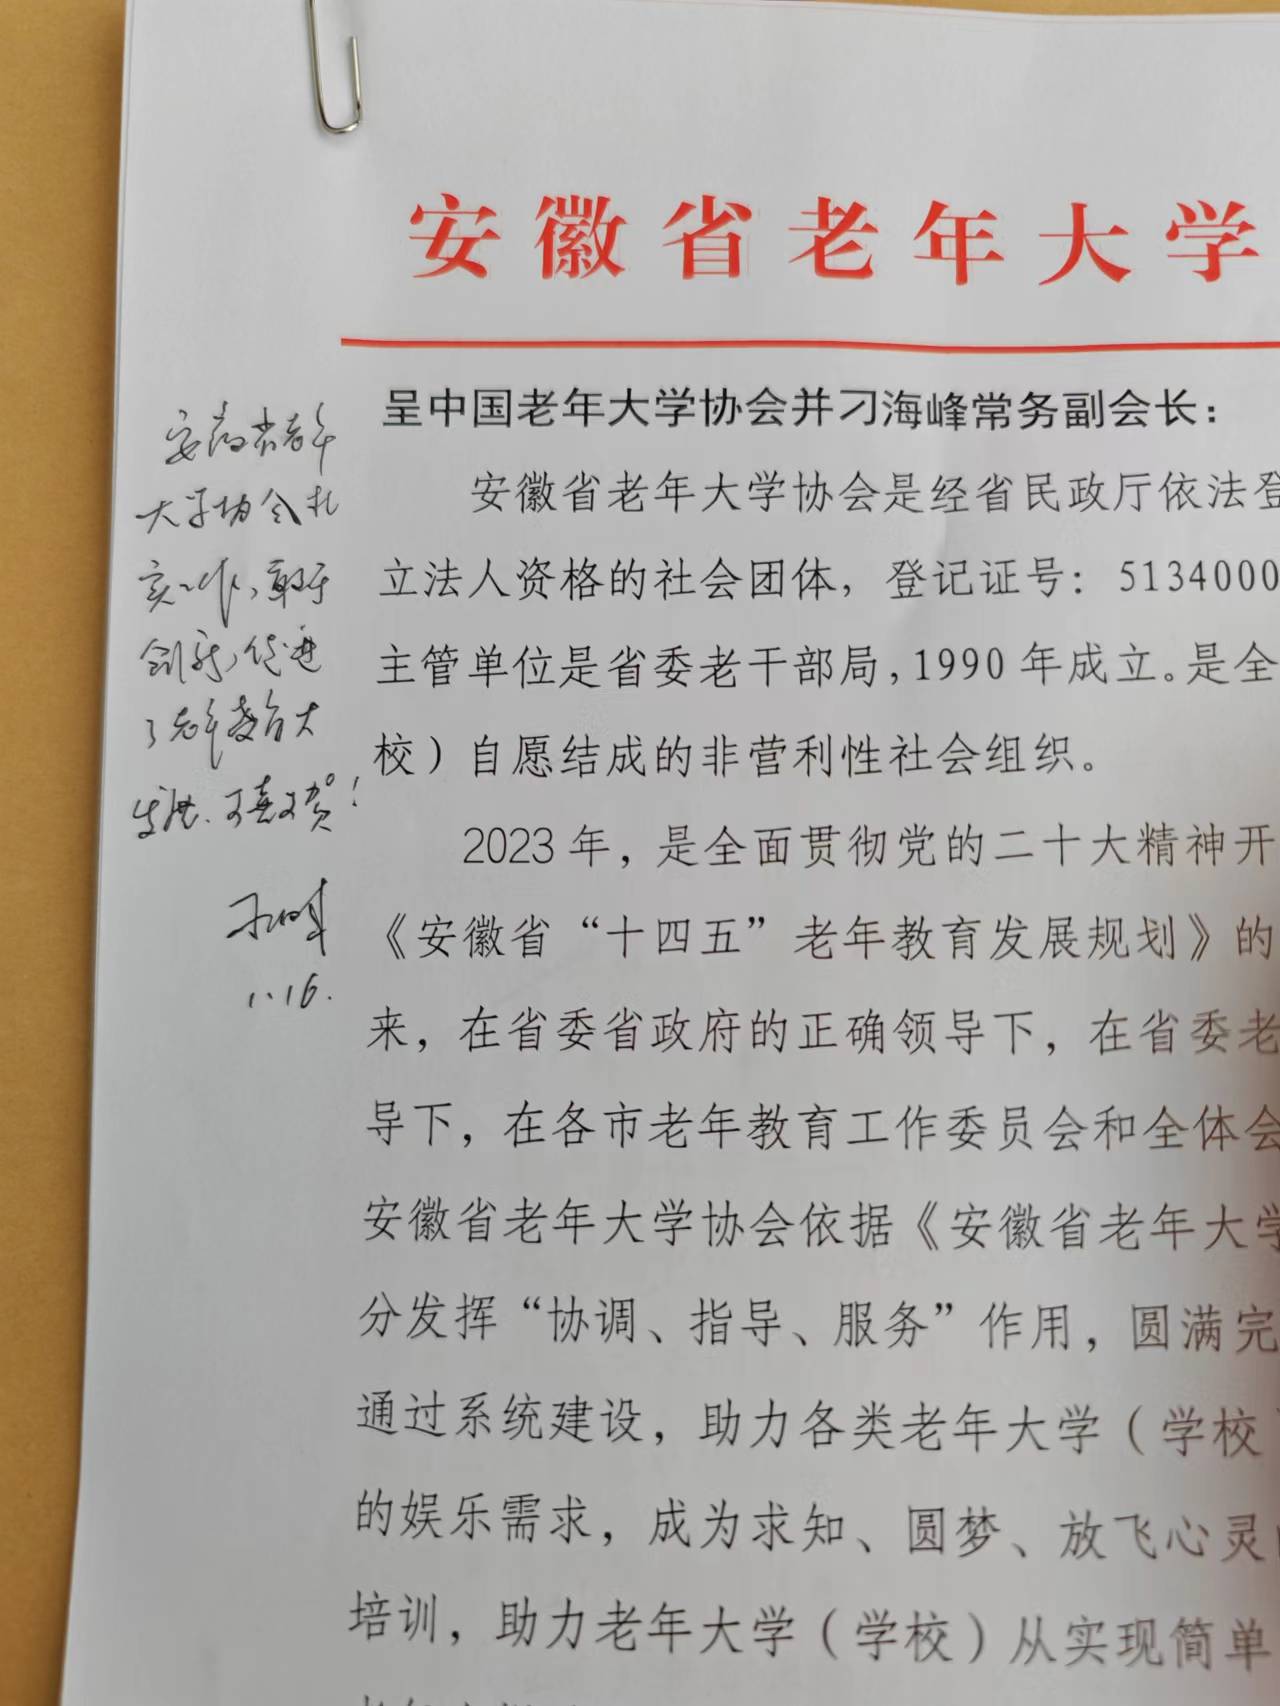 安徽省老年大学
呈中国老年大学协会并刁海峰常务副会长：
安徽省老年大学协会是经省民政厅依法登
立法人资格的社会团体，登记证号：5134000
主管单位是省委老干部局，1990年成立。是全
校）自愿结成的非营利性社会组织。
2023年，是全面贯彻党的二十大精神开
《安徽省“十四五”老年教育发展规划》的
来，在省委省政府的正确领导下，在省委老
导下，在各市老年教育工作委员会和全体会
安徽省老年大学协会依据《安徽省老年大学
分发挥“协调、指导、服务”作用，圆满完
通过系统建设，助力各类老年大学（学校）
的娱乐需求，成为求知、圆梦、放飞心灵
培训，助力老年大学（学校）从实现简单
安徽省老年
大学协会扎
实工作，敢于
创新，促进
了老年教育大
发展，可喜可贺！
1.16.